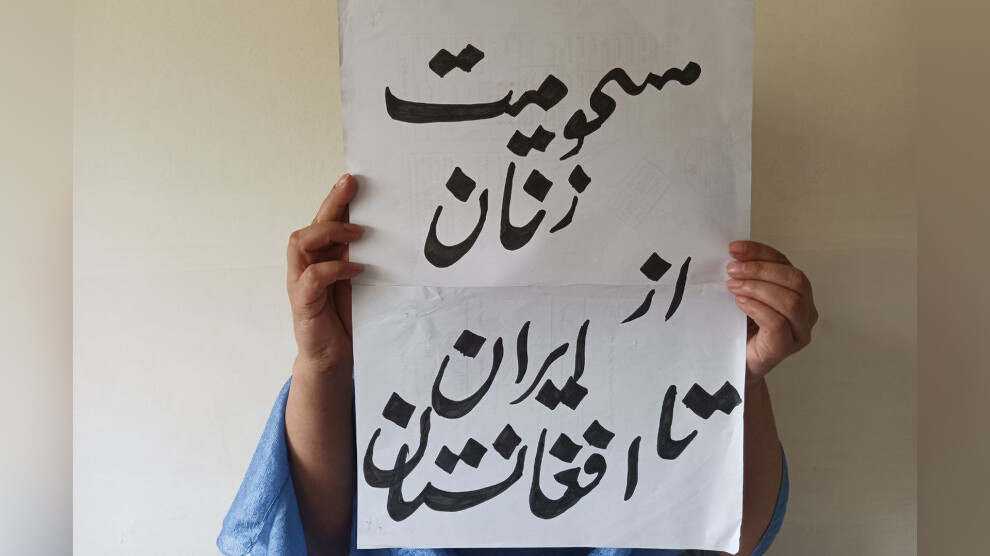 مسمومیت
زنان
از
ایران
تا افغانستان